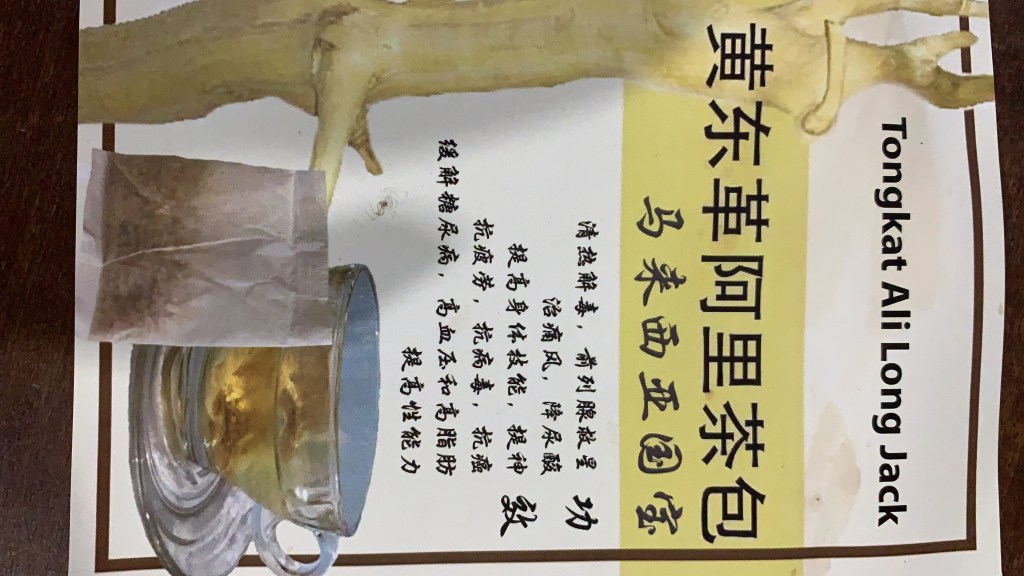 Tongkat Ali Long Jack
黄东革阿里茶包
马来西亚国宝
功效
清热解毒，前列腺救星
治痛风，降尿酸
提高身体技能，提神
抗疲劳，抗病毒，抗癌
缓解糖尿病，高血压和高脂肪
提高性能力